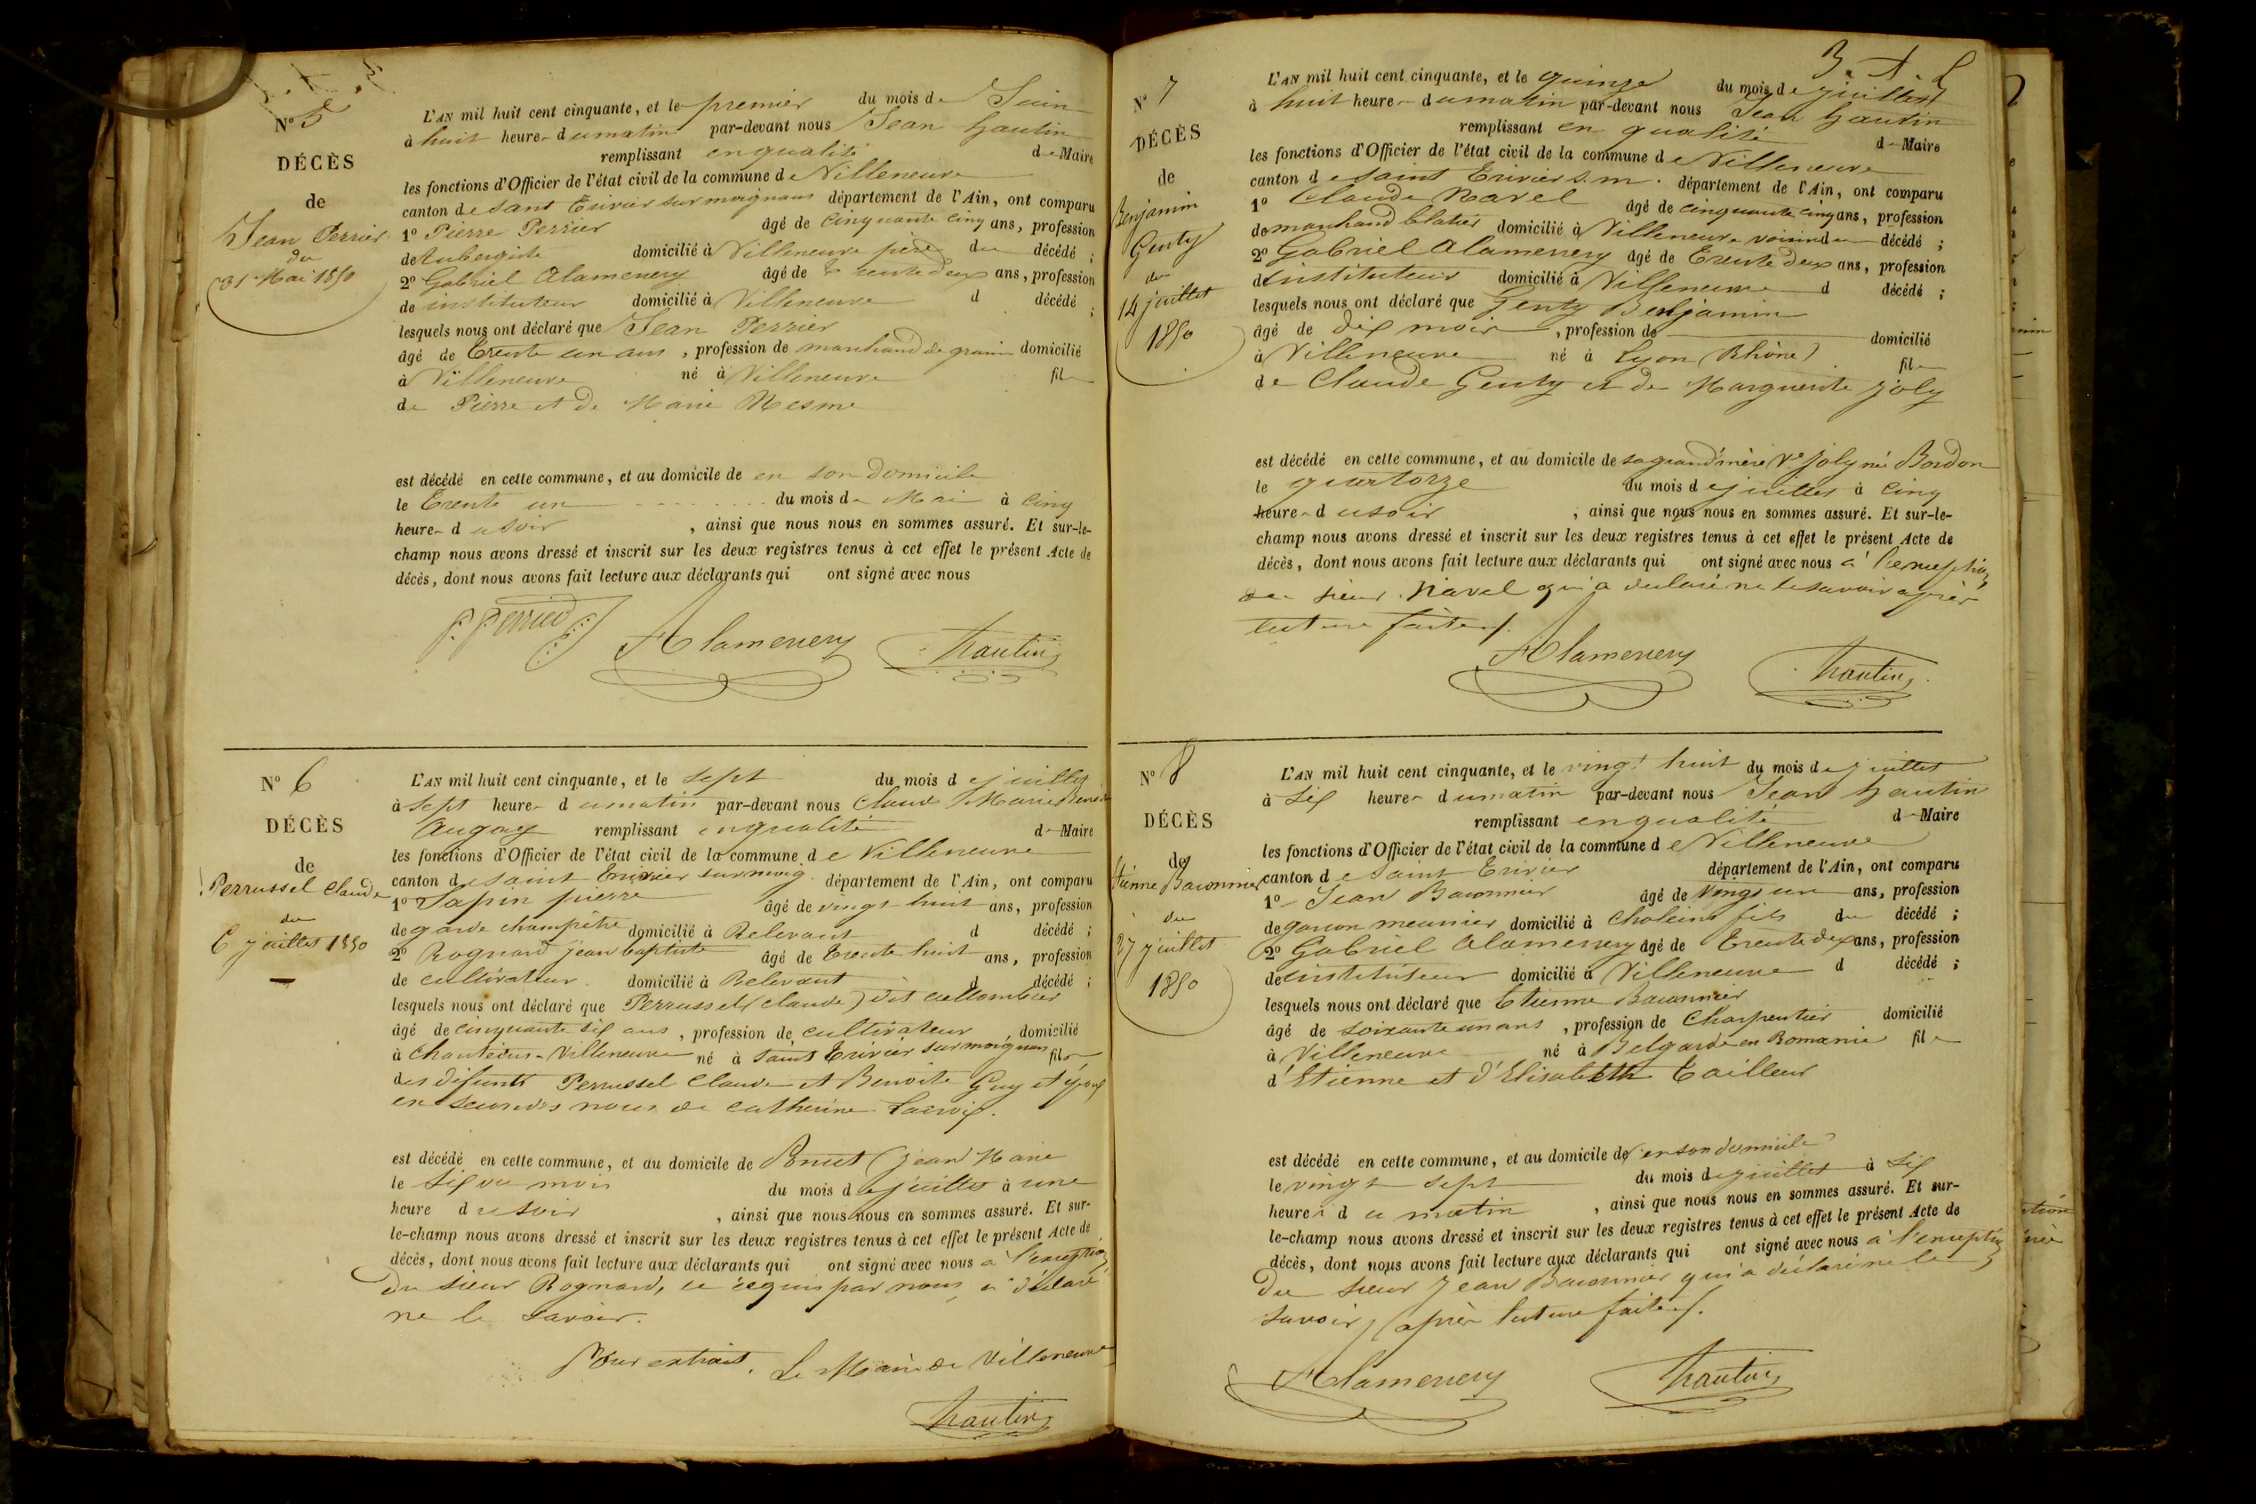 N° 5
DÉCÈS
de
Jean Perrier
du
31 Mai 1850
L'AN mil huit cent cinquante, et le premier du mois de Juin
à huit heures du matin par-devant nous Jean hautin
remplissant en qualité de Maire
les fonctions d'Officier de l'état civil de la commune de Villeneuve
canton de saint Trivier sur moignans département de l'Ain, ont comparu
1° Pierre Perrier âgé de cinquante cinq ans, profession
de Aubergiste domicilié à Villeneuve père du décédé ;
2° Gabriel Alamercery âgé de trente deux ans, profession
de instituteur domicilié à Villeneuve d décédé ;
lesquels nous ont déclaré que Jean Perrier
âgé de trente un ans, profession de marchand de grains domicilié
à Villeneuve né à Villeneuve fils
de Pierre et de Marie Mesme
est décédé en cette commune, et au domicile de en son domicile
le trente un du mois de Mai à cinq
heures du soir, ainsi que nous nous en sommes assuré. Et sur-le-
champ nous avons dressé et inscrit sur les deux registres tenus à cet effet le présent Acte de
décès, dont nous avons fait lecture aux déclarants qui ont signé avec nous
P. Perrier Alamercery hautin
N° 6
DÉCÈS
de
Perrussel Claude
du
6 juillet 1850
L'AN mil huit cent cinquante, et le sept du mois de juillet
à sept heures du matin par-devant nous Claude Marie
remplissant en qualité de Maire
les fonctions d'Officier de l'état civil de la commune de Villeneuve
canton de saint Trivier sur moig. département de l'Ain, ont comparu
1° Sapin pierre âgé de vingt huit ans, profession
de garde champêtre domicilié à Relevant d décédé ;
2° Rognard jean baptiste âgé de trente huit ans, profession
de cultivateur domicilié à Relevant d décédé ;
lesquels nous ont déclaré que Perrussel (claude) dit
âgé de cinquante six ans, profession de cultivateur, domicilié
à Villeneuve né à saint Trivier sur moignans fils
des défunts Perrussel Claude et Benoite Guy et époux
en secondes noces de catherine Lacroix.
est décédé en cette commune, et au domicile de (jean Marie
le six du mois du mois de juillet à une
heure du soir, ainsi que nous nous en sommes assuré. Et sur-
le-champ nous avons dressé et inscrit sur les deux registres tenus à cet effet le présent Acte de
décès, dont nous avons fait lecture aux déclarants qui ont signé avec nous à l'exception
du sieur Rognard, de ce requis par nous, a déclaré
ne le savoir.
Pour extrait. Le Maire de Villeneuve
hautin
N° 7
DÉCÈS
de
Benjamin
Genty
du
14 juillet
1850
L'AN mil huit cent cinquante, et le quinze du mois de juillet
à huit heures du matin par-devant nous Jean hautin
remplissant en qualité de Maire
les fonctions d'Officier de l'état civil de la commune de Villeneuve
canton de saint Trivier s. m. département de l'Ain, ont comparu
1° Claude Navel âgé de cinquante cinq ans, profession
de marchand blatier domicilié à Villeneuve voisin du décédé ;
2° Gabriel Alamercery âgé de trente deux ans, profession
de instituteur domicilié à Villeneuve d décédé ;
lesquels nous ont déclaré que Genty Benjamin
âgé de dix mois, profession de domicilié
à Villeneuve né à Lyon (Rhône) fils
de Claude Genty et de Marguerite joly
est décédé en cette commune, et au domicile de sa grand'mère Ve joly née Bordon
le quatorze du mois de juillet à cinq
heures du soir, ainsi que nous nous en sommes assuré. Et sur-le-
champ nous avons dressé et inscrit sur les deux registres tenus à cet effet le présent Acte de
décès, dont nous avons fait lecture aux déclarants qui ont signé avec nous à l'exception
du sieur Navel qui a déclaré ne le savoir après
lecture faite.
Alamercery hautin
N° 8
DÉCÈS
de
Etienne Baconnier
du
27 juillet
1850
L'AN mil huit cent cinquante, et le vingt huit du mois de juillet
à six heures du matin par-devant nous Jean hautin
remplissant en qualité de Maire
les fonctions d'Officier de l'état civil de la commune de Villeneuve
canton de saint Trivier département de l'Ain, ont comparu
1° Jean Baconnier âgé de vingt un ans, profession
de garcon meunier domicilié à Chaleins fils du décédé ;
2° Gabriel Alamercery âgé de trente deux ans, profession
de instituteur domicilié à Villeneuve d décédé ;
lesquels nous ont déclaré que Etienne Baconnier
âgé de soixante un ans, profession de Charpentier domicilié
à Villeneuve né à Belgarde en Romanie fils
d'Etienne et d'Elisabeth Tailleur
est décédé en cette commune, et au domicile de en son domicile
le vingt sept du mois de juillet à six
heures du matin, ainsi que nous nous en sommes assuré. Et sur-
le-champ nous avons dressé et inscrit sur les deux registres tenus à cet effet le présent Acte de
décès, dont nous avons fait lecture aux déclarants qui ont signé avec nous à l'exception
du sieur Jean Baconnier qui a déclaré ne le
savoir, après lecture faite.
Alamercery hautin